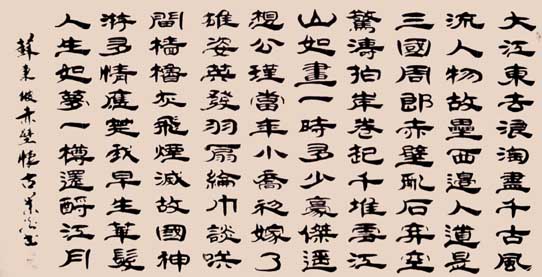 大江東去浪淘盡千古風
流人物故壘西邊人道是
三國周郎赤壁乱石穿空
驚濤拍岸卷起千堆雪江
山如畫一時多少豪傑遥
想公瑾當年小喬初嫁了
雄姿英發羽扇綸巾談笑
間檣櫓灰飛煙滅故國神
游多情應笑我早生華髮
人生如夢一樽還酹江月
蘇東坡赤壁懷古 書